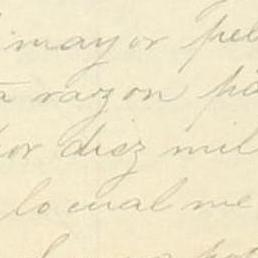 mayor pel
razon pa
or diez mil
lo cual me